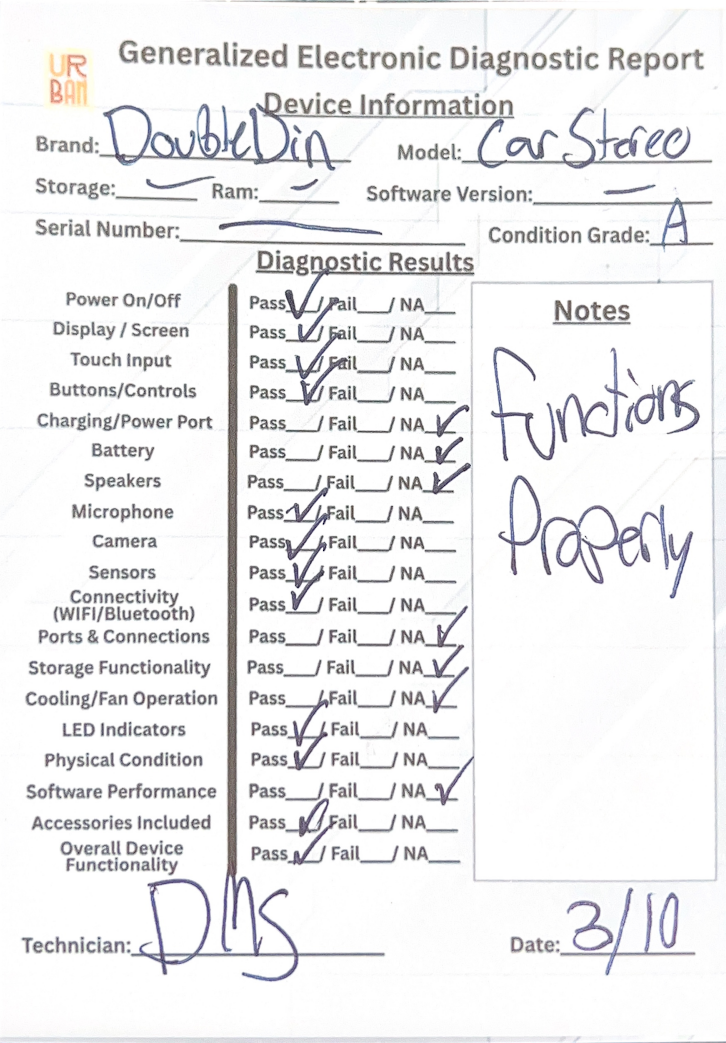 UR
BAN
Generalized Electronic Diagnostic Report
Device Information
Brand: DoubleDin Model: Car Stereo
Storage: — Ram: — Software Version: —
Serial Number: — Condition Grade: A
Diagnostic Results
Power On/Off Pass✓/ Fail___/ NA___
Display / Screen Pass✓/ Fail___/ NA___
Touch Input Pass✓/ Fail___/ NA___
Buttons/Controls Pass✓/ Fail___/ NA___
Charging/Power Port Pass___/ Fail___/ NA✓
Battery Pass___/ Fail___/ NA✓
Speakers Pass___/ Fail___/ NA✓
Microphone Pass✓/ Fail___/ NA___
Camera Pass✓/ Fail___/ NA___
Sensors Pass✓/ Fail___/ NA___
Connectivity
(WIFI/Bluetooth) Pass✓/ Fail___/ NA___
Ports & Connections Pass___/ Fail___/ NA✓
Storage Functionality Pass___/ Fail___/ NA✓
Cooling/Fan Operation Pass___/ Fail___/ NA✓
LED Indicators Pass✓/ Fail___/ NA___
Physical Condition Pass✓/ Fail___/ NA___
Software Performance Pass___/ Fail___/ NA✓
Accessories Included Pass✓/ Fail___/ NA___
Overall Device
Functionality Pass✓/ Fail___/ NA___
Notes
Functions
Properly
Technician: DMS Date: 3/10